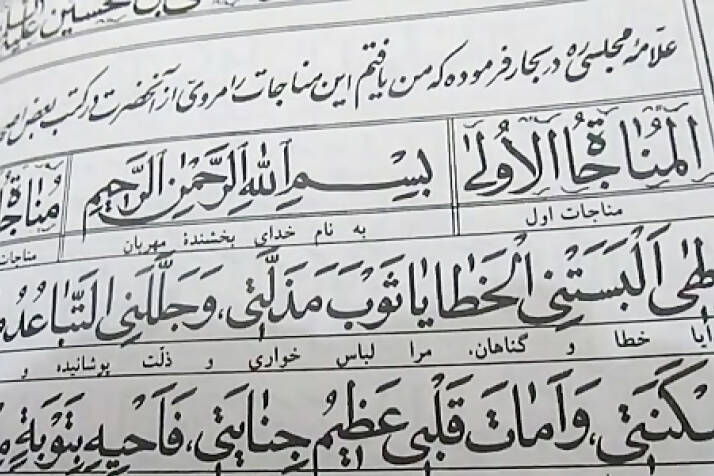 بن الحسین علیه السلام
علامهٔ مجلسی ره در بحار فرموده که من یافتم این مناجات را مروی از آنحضرت در کتب بعض
المُناجاةُ الاُولیٰ بِسْمِ اللهِ الرَّحْمٰنِ الرَّحیمِ
مناجات اول به نام خدای بخشندهٔ مهربان مناجات
اَلْبَسَتْنِی الْخَطایا ثَوْبَ مَذَلَّتی، وَجَلَّلَنِی التَّباعُدُ
خطا و گناهان، مرا لباس خواری و ذلّت پوشانیده و
وَاَماتَ قَلْبی عَظیمُ جِنایَتی، فَاَحْیِهِ بِتَوْبَةٍ